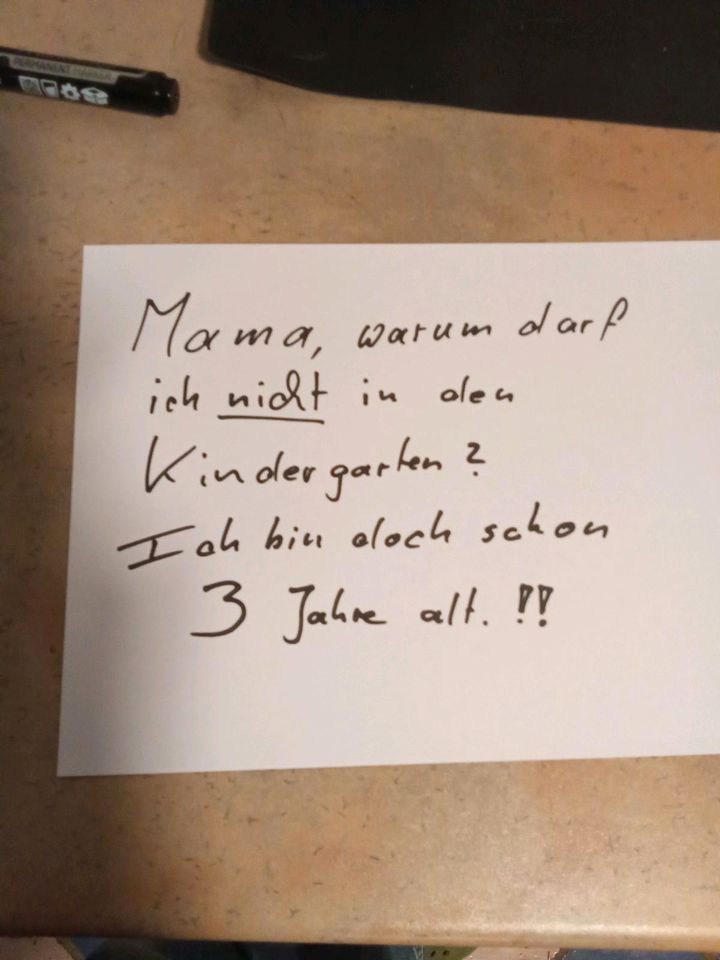 PERMANENT MARKER
Mama, warum darf
ich nicht in den
Kindergarten?
Ich bin doch schon
3 Jahre alt. !!